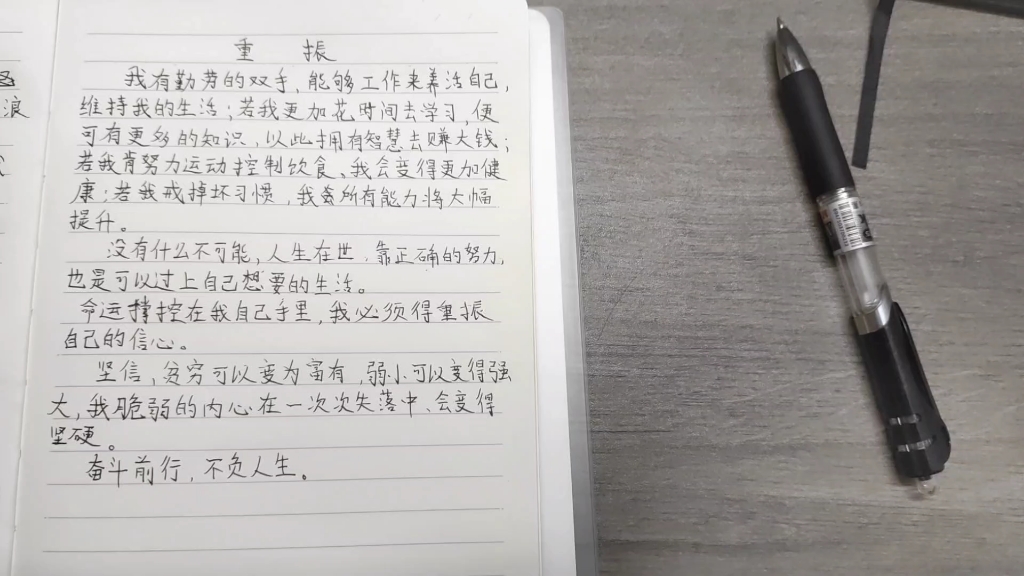 重 振
我有勤劳的双手，能够工作来养活自己，
维持我的生活；若我更加花时间去学习，便
可有更多的知识，以此拥有智慧去赚大钱；
若我肯努力运动控制饮食、我会变得更加健
康；若我戒掉坏习惯，我各所有能力将大幅
提升。
没有什么不可能，人生在世，靠正确的努力，
也是可以过上自己想要的生活。
命运掌控在我自己手里，我必须得重振
自己的信心。
坚信，贫穷可以变为富有，弱小可以变得强
大，我脆弱的内心在一次次失落中、会变得
坚硬。
奋斗前行，不负人生。
浪